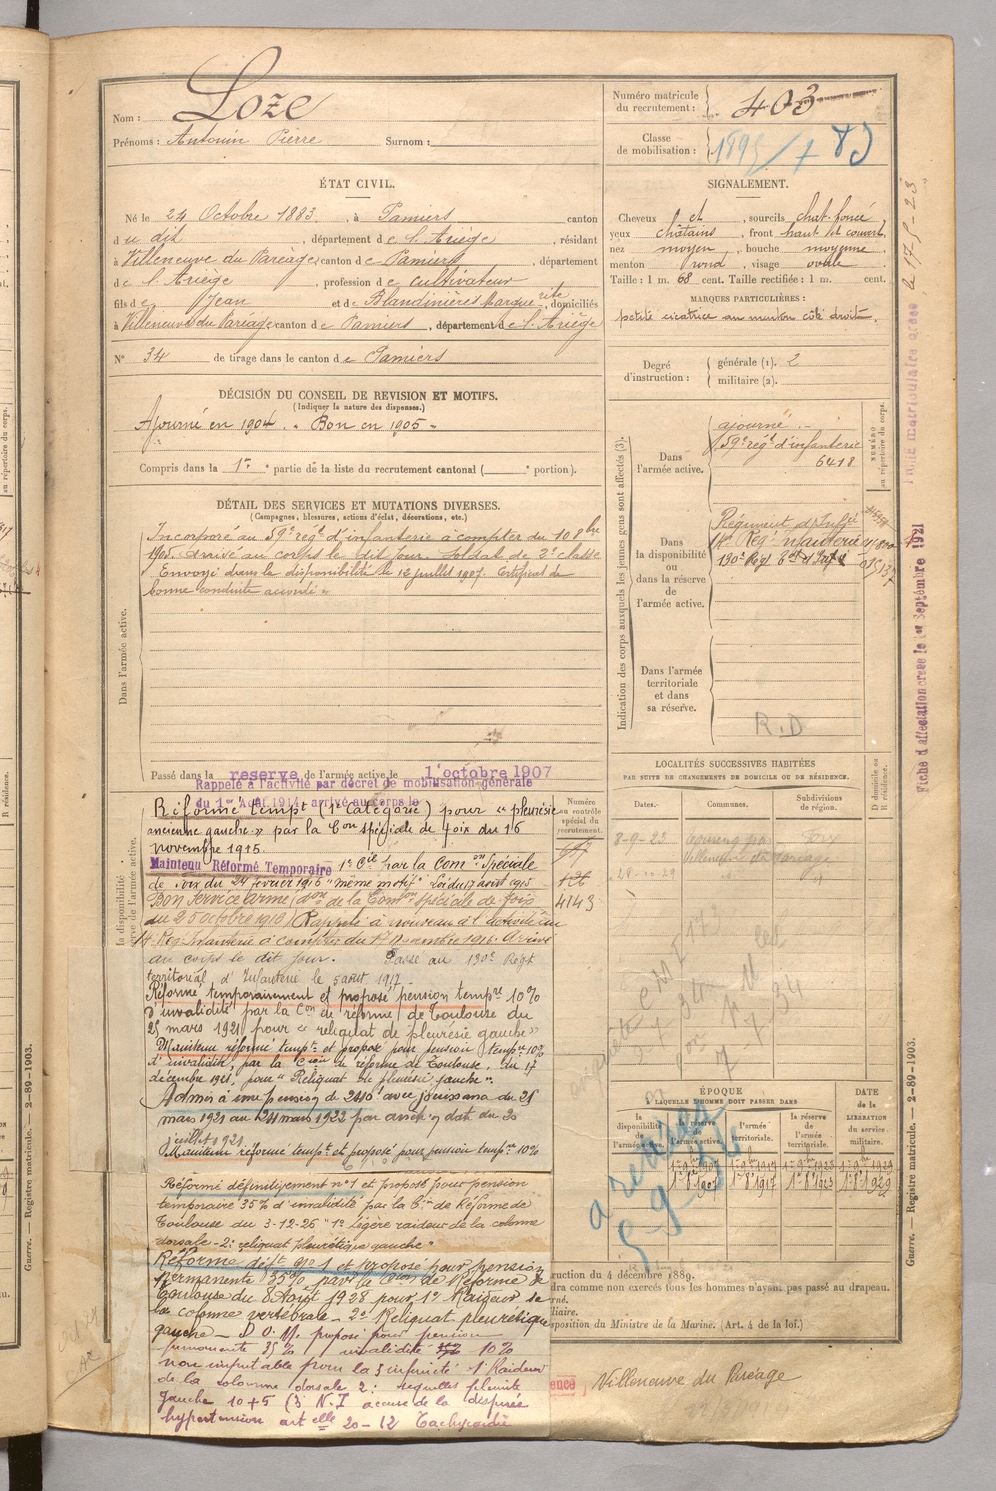 Nom : Loze
Prénoms : Antonin Pierre Surnom :
Numéro matricule du recrutement : 403
Classe de mobilisation :
ÉTAT CIVIL.
Né le 24 Octobre 1883, à Pamiers canton
du dit, département de l'Ariège, résidant
à Villeneuve du Paréage, canton de Pamiers, département
de l'Ariège, profession de cultivateur
fils de Jean et de Blandinières Marguerite, domiciliés
à Villeneuve du Paréage canton de Pamiers, département de l'Ariège
N° 34 de tirage dans le canton de Pamiers
SIGNALEMENT.
Cheveux et, sourcils chat. foncé,
yeux châtains, front haut et couvert,
nez moyen, bouche moyenne
menton rond, visage ovale
Taille : 1 m. 68 cent. Taille rectifiée : 1 m. cent.
MARQUES PARTICULIÈRES :
petite cicatrice au menton côté droit.
Degré d'instruction : générale (1). 2
militaire (2).
DÉCISION DU CONSEIL DE REVISION ET MOTIFS.
(Indiquer la nature des dispenses.)
Ajourné en 1904. Bon en 1905
Compris dans la 1re partie de la liste du recrutement cantonal ( e portion).
DÉTAIL DES SERVICES ET MUTATIONS DIVERSES.
(Campagnes, blessures, actions d'éclat, décorations, etc.)
Dans l'armée active.
Incorporé au 59e régt d'infanterie à compter du 10 8bre
1905. Arrivé au corps le dit jour. Soldat de 2e classe
Envoyé dans la disponibilité le 12 juillet 1907. Certificat de
bonne conduite accordé
Passé dans la reserve de l'armée active le 1er octobre 1907
Rappelé à l'activité par décret de mobilisation générale
du 1er Août 1914, arrivé au corps le
Réformé tempre (1e Catégorie) pour « pleurésie
ancienne gauche » par la Con spéciale de Foix du 16
novembre 1915.
Maintenu Réformé Temporaire 1e Cie par la Comon Spéciale
de Foix du 24 fevrier 1916 "même motif" Loi du 17 aout 1915
Bon Service armé (don de la Comon Spéciale de Foix
du 25 octobre 1916) Rappelé à nouveau à l'activité au
14 Reg. Infanterie à compter du 17 Novembre 1916. Arrivé
au corps le dit jour. Passé au 130e Régt
territorial d'Infanterie le 5 août 1917
Réformé temporairement et proposé pension tempre 10%
d'invalidité par la Con de réforme de Toulouse du
25 mars 1921 pour « reliquat de pleurésie gauche »
Maintenu réformé tempt et proposé pour pension tempre 10%
d'invalidité, par la Cion de réforme de Toulouse, du 17
décembre 1921, pour "Reliquat de pleurésie gauche".
Admis à une pension de 240f avec jouissance du 25
mars 1921 au 24 mars 1922 par arrêté en date du 20
juillet 1921
Maintenu réformé tempt et proposé pour pension tempre 10%
Réformé définitivement n°1 et proposé pour pension
temporaire 35% d'invalidité par la Con de Réforme de
Toulouse du 3-12-26 "1° Légère raideur de la colonne
dorsale - 2° reliquat pleurétique gauche"
Réformé déft n°1 et proposé pour pension
permanente 35% par la Con de Réforme de
Toulouse du 8 Août 1928 pour 1° Raideur de
la colonne vertébrale - 2° Reliquat pleurétique
gauche - D.O.M. proposé pour pension
permanente 35% invalidité 10%
non imputable pour la 3 infirmité 1° Raideur
de la colonne dorsale 2° sequelles pleurite
gauche 10+5 (3° N.I accuse de la dyspnée
hypertension artelle 20-12 Tachycardie
Indication des corps auxquels les jeunes gens sont affectés (3).
Dans l'armée active.
ajourné
59e régt d'infanterie
6418
NUMÉRO au répertoire du corps.
Dans la disponibilité ou dans la réserve de l'armée active.
Régiment d'Infie
14e Reg. Infanterie
130e Régt
Dans l'armée territoriale et dans sa réserve.
R.D
Numéro au contrôle spécial du recrutement.
4143
LOCALITÉS SUCCESSIVES HABITÉES
PAR SUITE DE CHANGEMENTS DE DOMICILE OU DE RÉSIDENCE.
Dates. Communes. Subdivisions de région. D domicile ou R résidence.
8-9-23 Foix
Villeneuve du Pareage
28-10-29
ÉPOQUE À LAQUELLE L'HOMME DOIT PASSER DANS
la disponibilité de l'armée active. la réserve de l'armée active. l'armée territoriale. la réserve de l'armée territoriale.
DATE de la LIBÉRATION du service militaire.
1er 8bre 1907 1er 8bre 1917 1er 8bre 1923 1er 8bre 1929
5-9-36
ruction du 4 décembre 1889.
dra comme non exercés tous les hommes n'ayant pas passé au drapeau.
rné.
liaire.
sposition du Ministre de la Marine. (Art. 4 de la loi.)
Villeneuve du Paréage
Fiche matriculaire créée le 17-5-23
Fiche d'affectation créée le 1er Septembre 1921
Guerre. — Registre matricule. — 2-89-1903.
Guerre. — Registre matricule. — 2-89-1903.